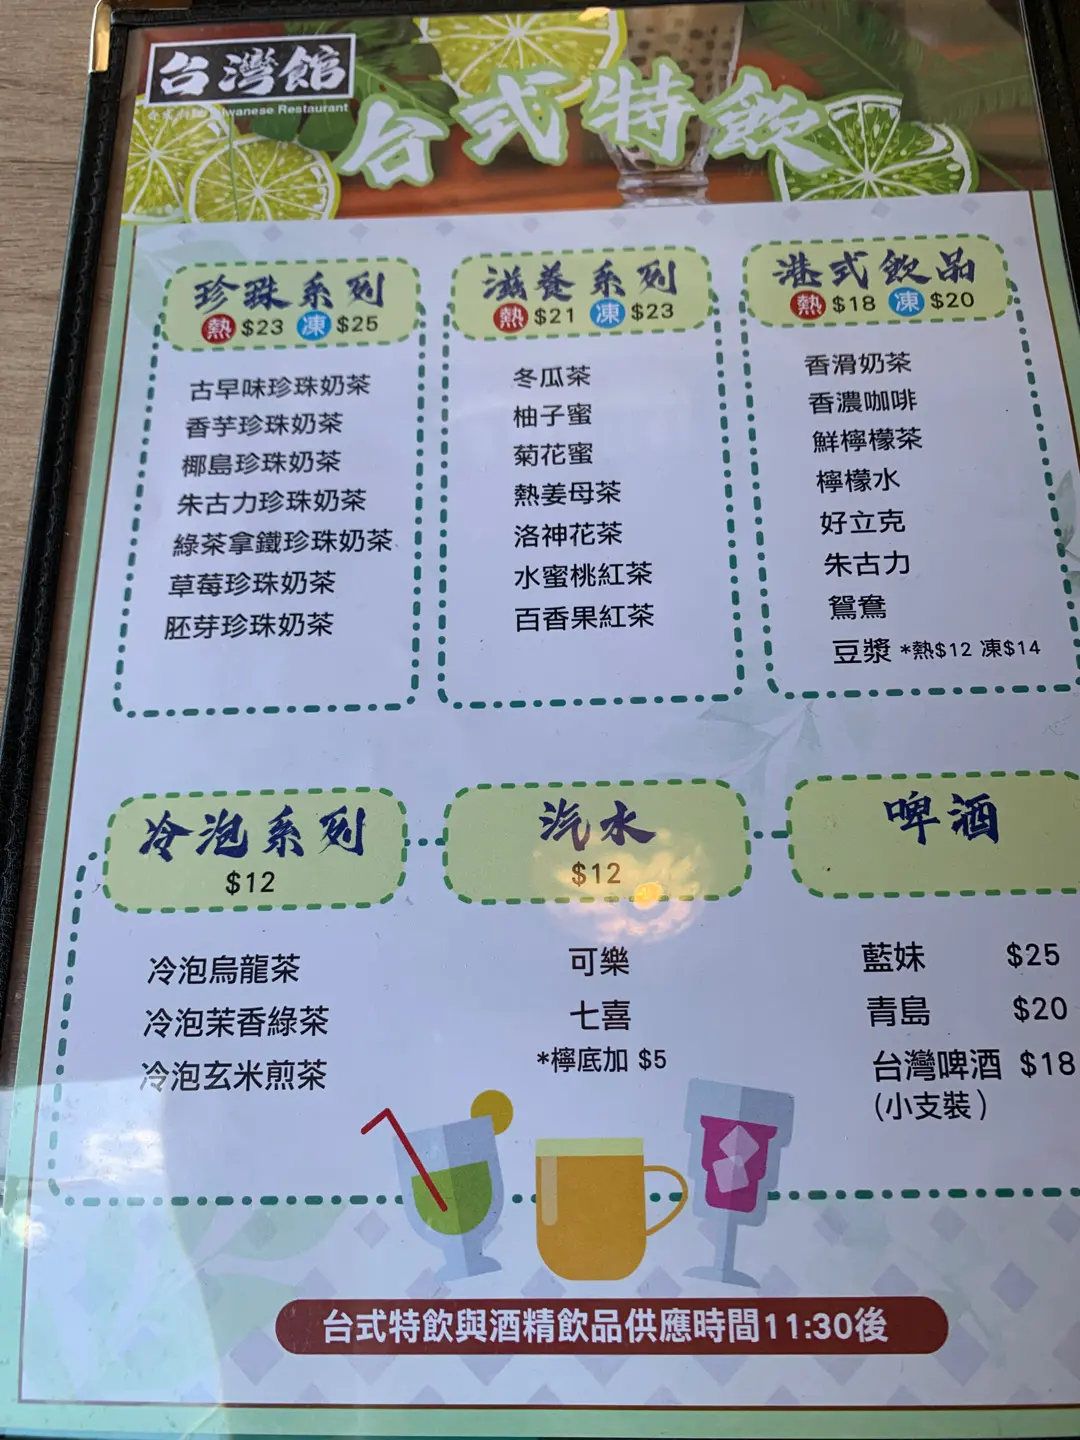 台灣館
Taiwanese Restaurant
台式特飲
珍珠系列
熱 $23 凍 $25
古早味珍珠奶茶
香芋珍珠奶茶
椰島珍珠奶茶
朱古力珍珠奶茶
綠茶拿鐵珍珠奶茶
草莓珍珠奶茶
胚芽珍珠奶茶
滋養系列
熱 $21 凍 $23
冬瓜茶
柚子蜜
菊花蜜
熱姜母茶
洛神花茶
水蜜桃紅茶
百香果紅茶
港式飲品
熱 $18 凍 $20
香滑奶茶
香濃咖啡
鮮檸檬茶
檸檬水
好立克
朱古力
鴛鴦
豆漿 *熱$12 凍$14
冷泡系列
$12
冷泡烏龍茶
冷泡茉香綠茶
冷泡玄米煎茶
汽水
$12
可樂
七喜
*檸底加 $5
啤酒
藍妹 $25
青島 $20
台灣啤酒 $18
(小支裝)
台式特飲與酒精飲品供應時間11:30後